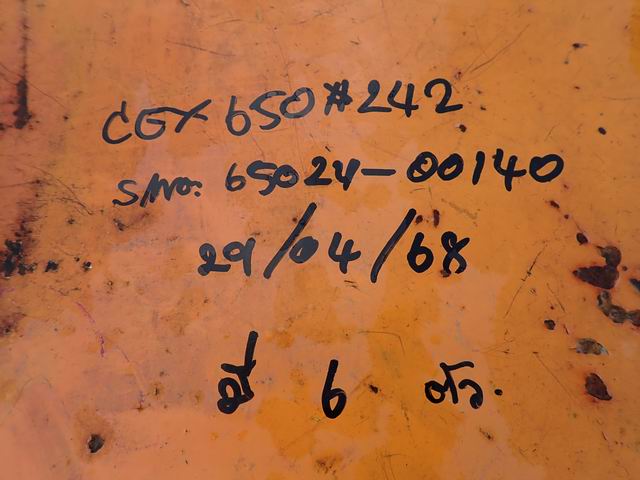 CEX 650#242
S/No: 65024-00140
29/04/68
มี 6 ตัว.